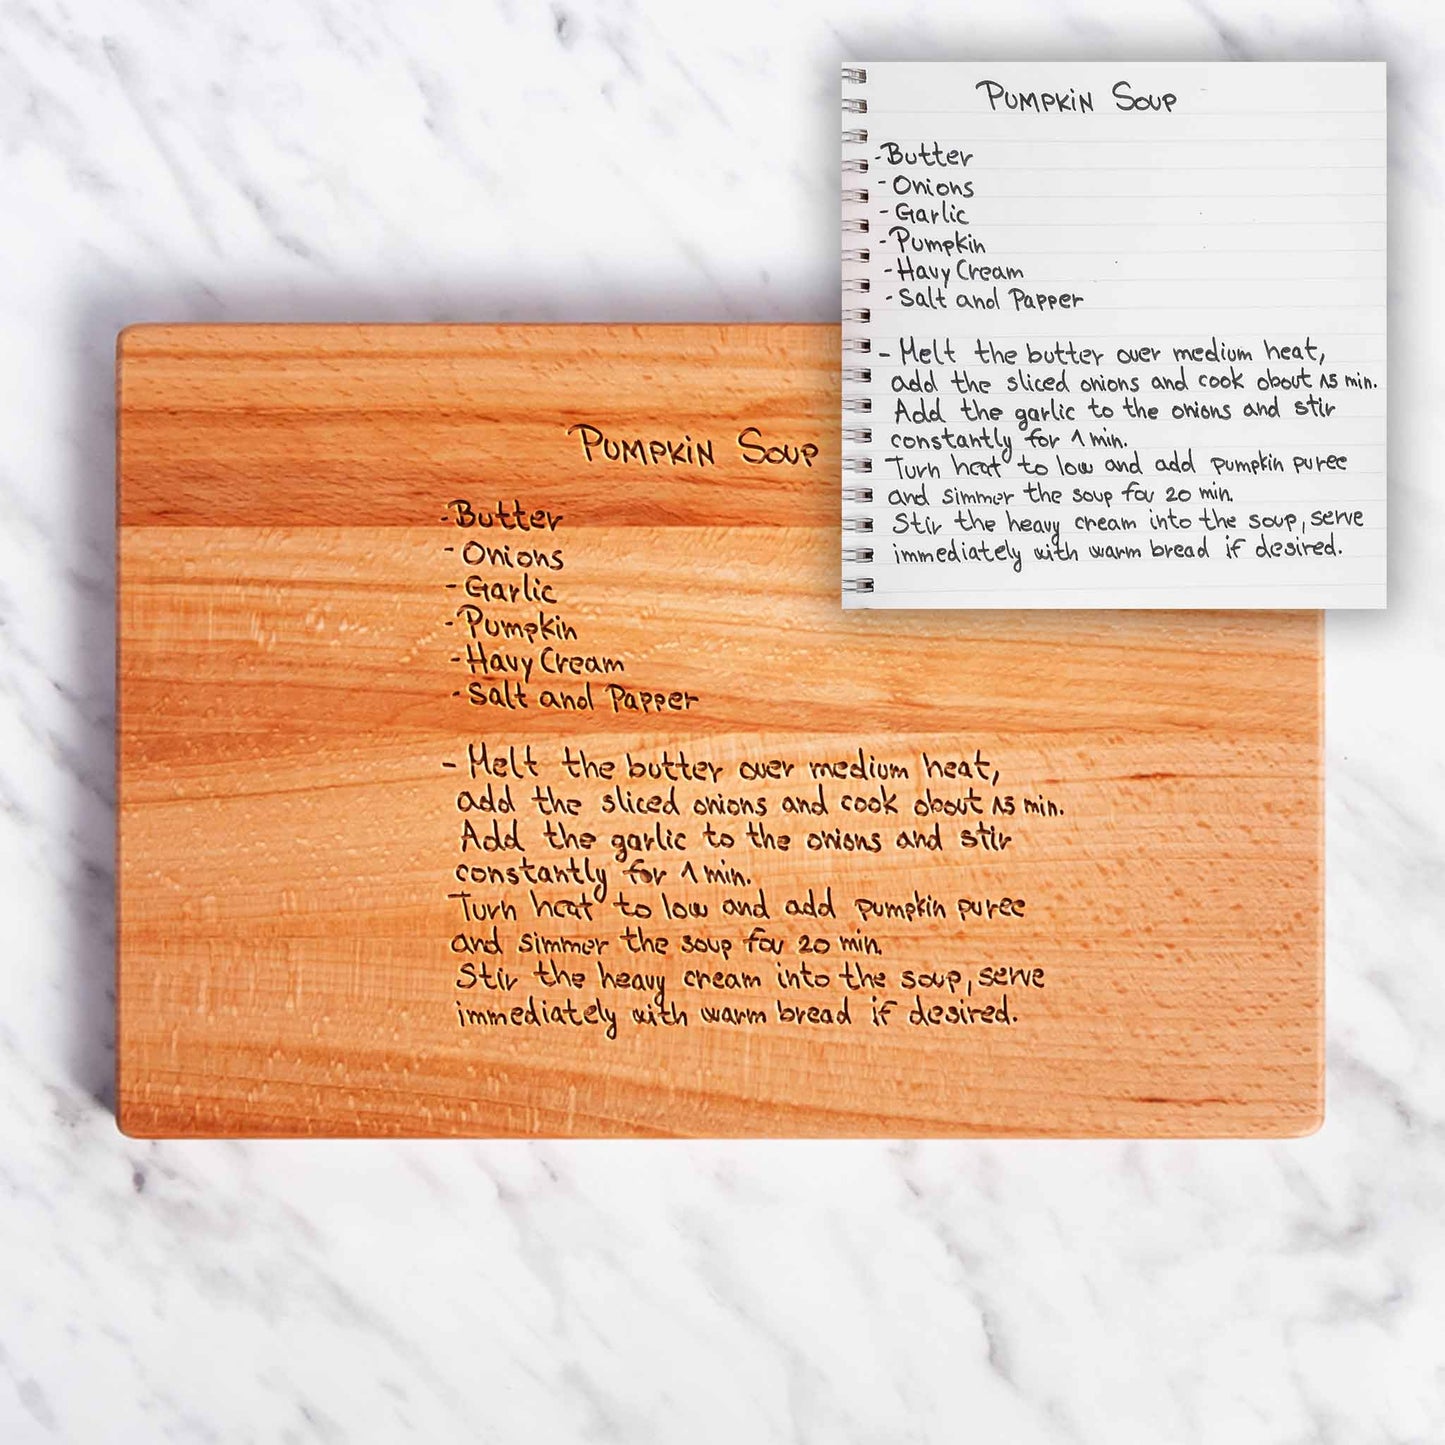 PUMPKIN SOUP
-Butter
-Onions
-Garlic
-Pumpkin
-Havy Cream
-Salt and Papper
- Melt the butter over medium heat,
add the sliced onions and cook about 15 min.
Add the garlic to the onions and stir
constantly for 1 min.
Turn heat to low and add pumpkin puree
and simmer the soup for 20 min.
Stir the heavy cream into the soup, serve
immediately with warm bread if desired.
PUMPKIN SOUP
-Butter
-Onions
-Garlic
-Pumpkin
-Havy Cream
-Salt and Papper
- Melt the butter over medium heat,
add the sliced onions and cook about 15 min.
Add the garlic to the onions and stir
constantly for 1 min.
Turn heat to low and add pumpkin puree
and simmer the soup for 20 min.
Stir the heavy cream into the soup, serve
immediately with warm bread if desired.